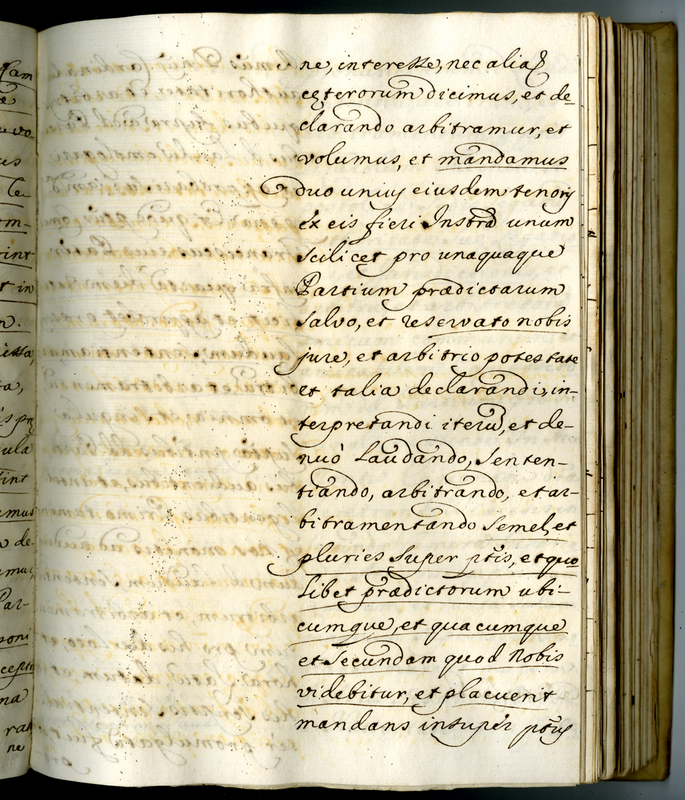 ne, interesse, nec alias
ceterorum dicimus, et de
clarando arbitramur, et
volumus, et mandamus
duo unius eiusdem tenoris
ex eis fieri Instra unum
scilicet pro unaquaque
Partium prædictarum
salvo, et reservato nobis
jure, et arbitrio potestate
et talia declarandi, in-
terpretandi iteru, et de-
nuò Laudando, senten-
tiando, arbitrando, et ar-
bitramentando semel, et
pluries super ptis, et quo
Libet prædictorum ubi-
cumque, et quacumque
et secundam quod Nobis
videbitur, et placuerit
mandans insuper ptis